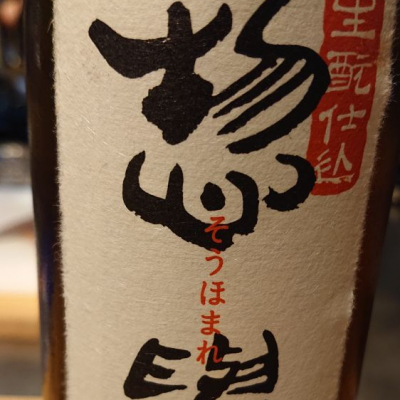 生酛仕込
惣
そうほまれ